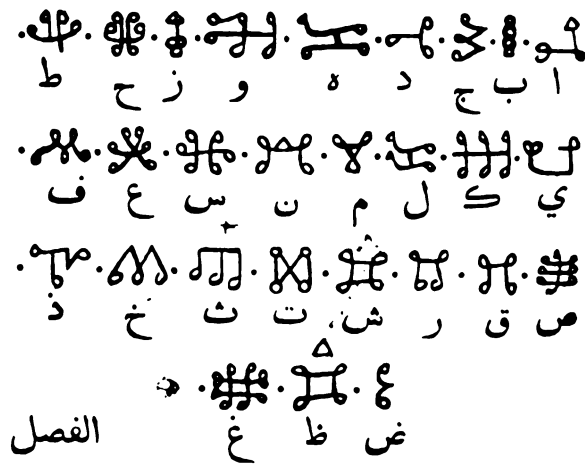 ا ب ج د ه و ز ح ط
ي ك ل م ن س ع ف
ص ق ر ش ت ث خ ذ
ض ظ غ
الفصل